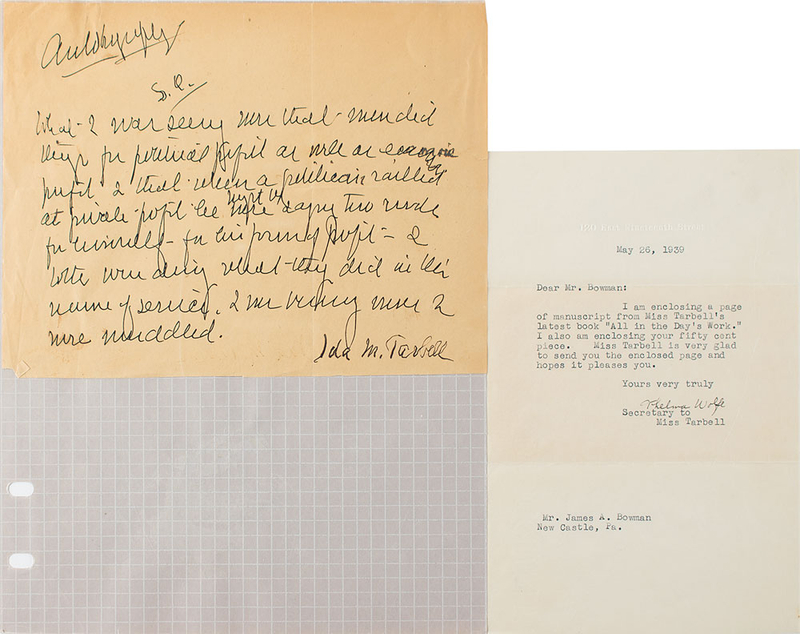 Autobiography
What I was seeing was that men did
things for political profit as well as economic
profit & that when a politician railled
at private profit he might be
for himself - for his form of profit -
both were doing what they did in the
name of service. I was being more &
more muddled.
Ida M. Tarbell
May 26, 1939
Dear Mr. Bowman:
I am enclosing a page
of manuscript from Miss Tarbell's
latest book "All in the Day's Work."
I also am enclosing your fifty cent
piece. Miss Tarbell is very glad
to send you the enclosed page and
hopes it pleases you.
Yours very truly
Thelma Wolfe
Secretary to
Miss Tarbell
Mr. James A. Bowman
New Castle, Pa.